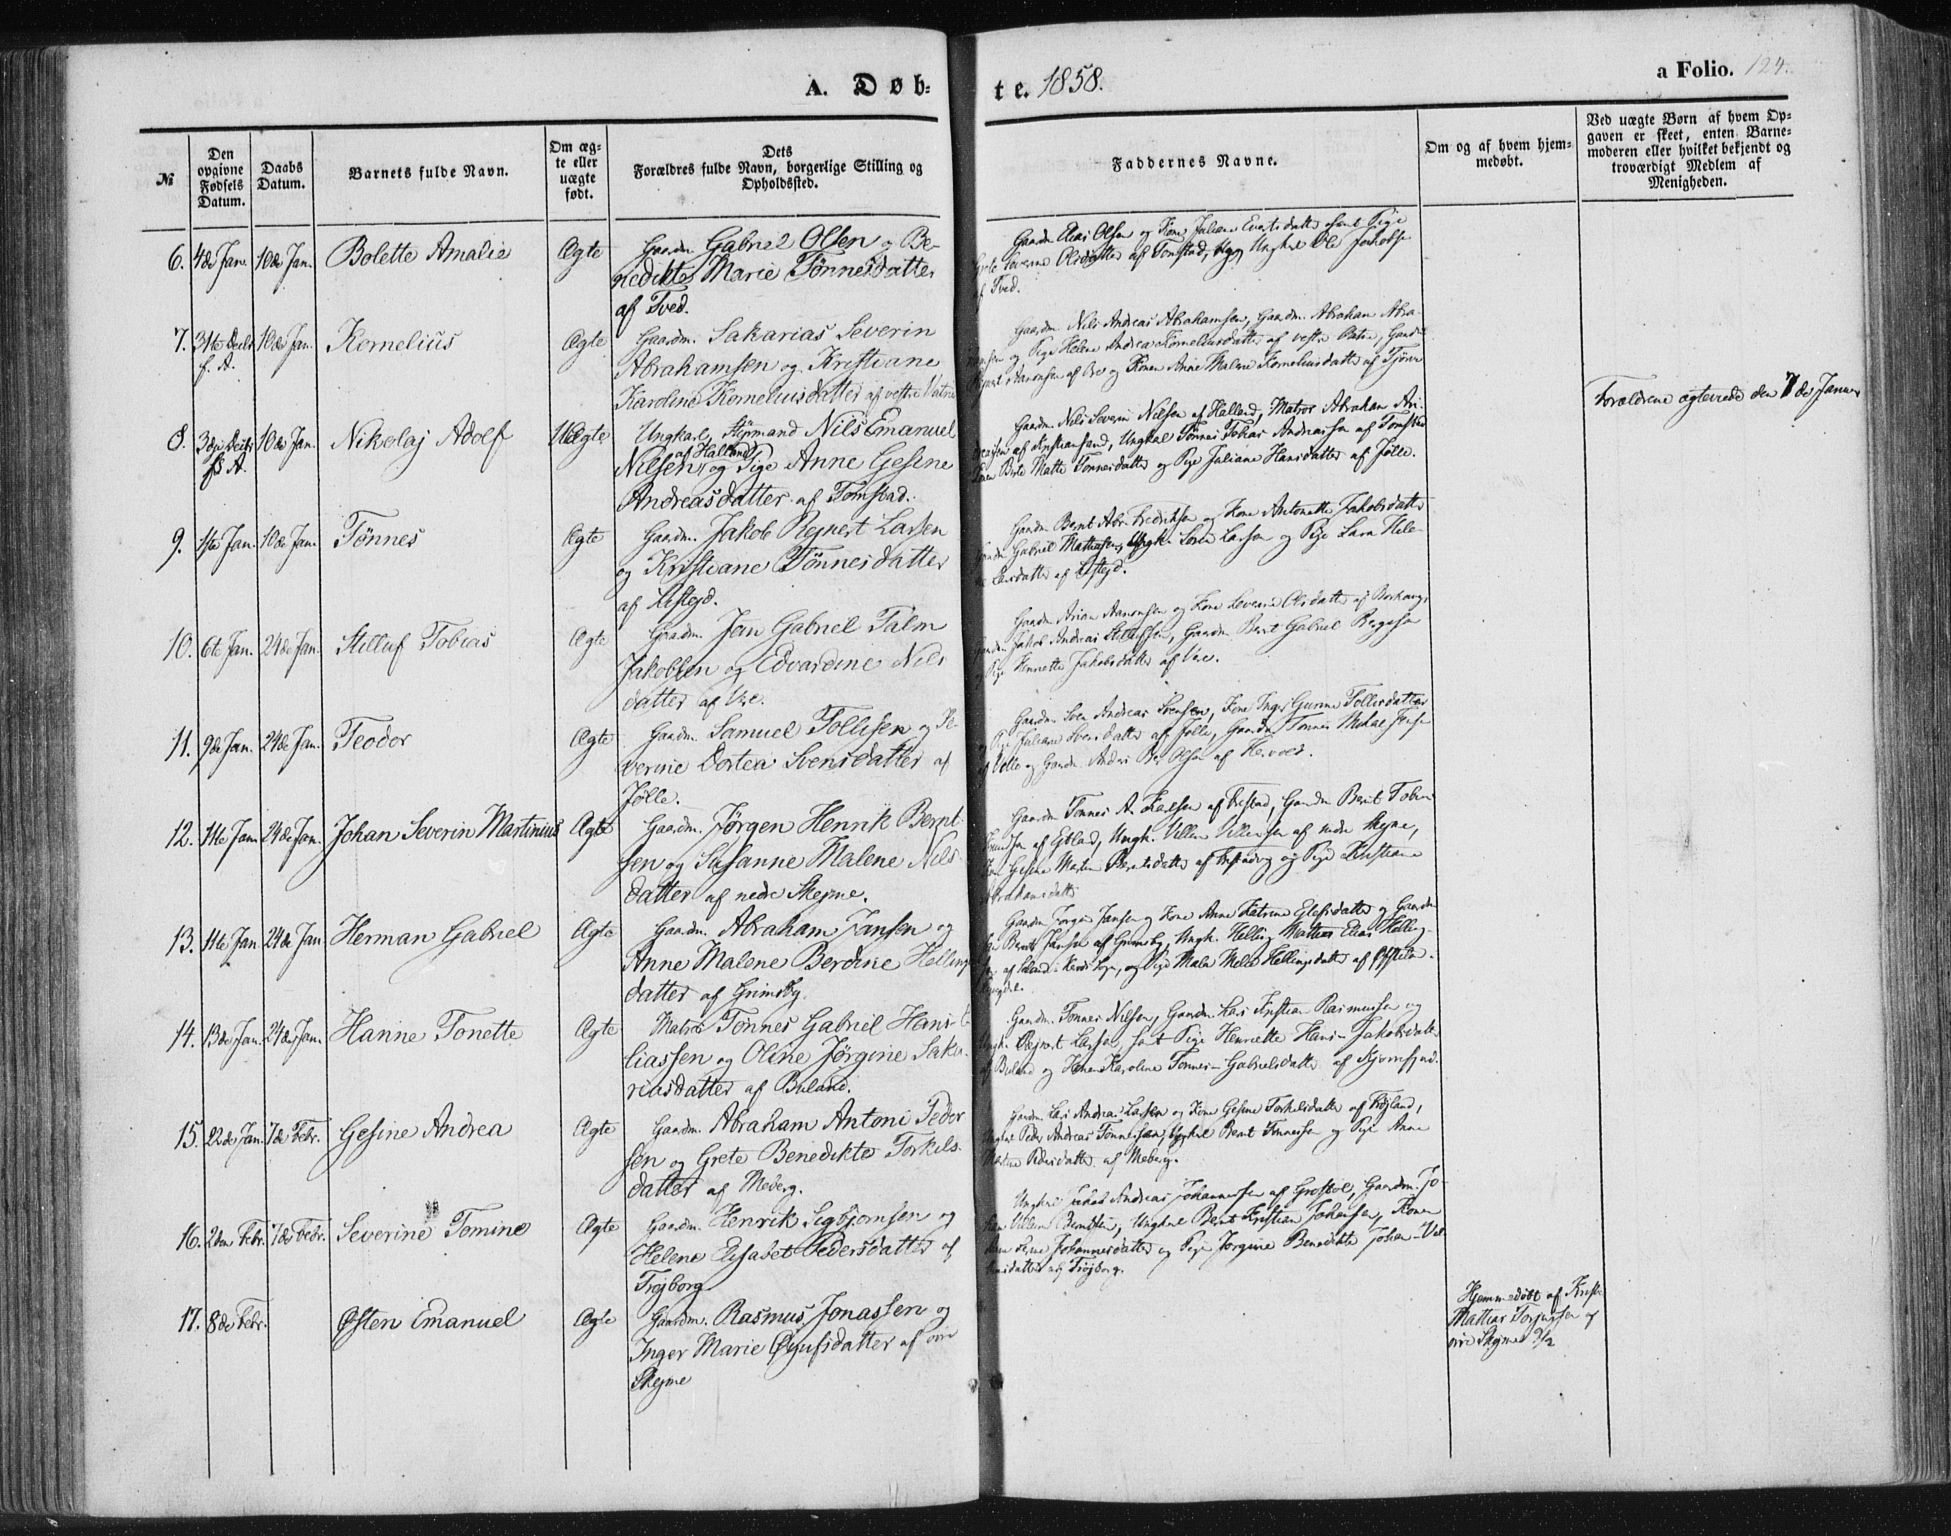 A. Døb=
te. 1858.
a Folio. 124.
№
Den opgivne Fødsels Datum.
Daabs Datum.
Barnets fulde Navn.
Om ægte eller uægte født.
Dets Forældres fulde Navn, borgerlige Stilling og Opholdssted.
Faddernes Navne.
Om og af hvem hjemmedøbt.
Ved uægte Børn af hvem Opgaven er skeet, enten Barnemoderen eller hvilket bekjendt og troværdigt Medlem af Menigheden.
6. 4de Jan. 10de Jan. Bolette Amalie Ægte Gaardm. Gabriel Olsen og Be-
nedikte Marie Tønnesdatter
af Tved.
Gaardm. Elias Olsen og Kone Juliane samt Pige
Grete Severine Olsdatter af Tomstad, Ungkarl Ole Jakobs.
af Tved.
7. 31te Decbr 10de Jan. Kornelius Ægte Gaardm. Sakarias Severin
f. A. Abrahamsen og Kristiane
Karoline Korneliusdatter af vestre Vatne
Gaardm. Nils Andreas Abrahamsen, Gaardm. Abraham Abra-
hamsen og Pige Helene Andrea Korneliusdatter af vestre Vatne, Gaardm.
Aanonsen af Bre og Konen Anne Malene Korneliusdatter af Tjørve
8. Decbr 10de Jan. Nikolaj Adolf Uægte Ungkarl, Styrmand Nils Emanuel
f. A. Nilsen af Halland og Pige Anne Gesine
Andreasdatter af Tomstad.
Gaardm. Nils Severin Nilsen af Halland, Matros Abraham An-
dreassen af Kristiansand, Ungkarl Tønnes Tobias Andreassen af Tomstad
Konen Berte Marte Tønnesdatter og Pige Juliane Hansdatter af Jølle.
Forældrene ægteviede den 7de Januar
9. 1ste Jan. 10de Jan. Tønnes Ægte Gaardm. Jakob Rejnert Larsen
og Kristiane Tønnesdatter
af
Gaardm. Bernt Abr. Fredriksen og Kone Antonette Jakobsdatter
Gaardm. Gabriel Mathiesen, Ungk. Søren Larsen og Pige Lara Hele-
ne Larsdatter af
10. 6te Jan. 24de Jan. Stilluf Tobias Ægte Gaardm. Jan Gabriel Talm
Jakobsen og Edvardine Nils
datter af Vre.
Gaardm. Arian Aanonsen og Kone Severine Olsdatter af Borhaug,
Gaardm. Jakob Andreas Stillufsen, Gaardm. Bernt Gabriel
og Pige Hennette Jakobsdatter af Vre.
11. 9de Jan. 24de Jan. Teodor Ægte Gaardm. Samuel Tollisen og Se-
verine Dortea Svensdatter af
Jølle.
Gaardm. Sven Andreas Svensen, Kone Inger Gurine Tollisdatter
og Pige Juliane Svensdatter af Jølle, Gaardm. Tønnes Mikal
af Jølle og Gaardm. Andr. Olsen af
12. 11te Jan. 24de Jan. Johan Severin Martinius Ægte Gaardm. Jørgen Henrik Bernt
sen og Susanne Malene Nils-
datter af nedre Skejme.
Gaardm. Tønnes A. Larsen af Gaardm. Bernt Tobias
af Ungk. Villum Villumsen af nedre Skejme,
Kone Gesine Marten Berntsdatter af og Pige Kristiane
Abrahamsdatter
13. 11te Jan. 24de Jan. Herman Gabriel Ægte Gaardm. Abraham Jansen og
Anne Malene Berdine Hellings
datter af Grimsby.
Gaardm. Jørgen Jansen og Kone Anne Katrine og Gaardm.
Bernt Jansen af Grimsby, Ungk. Helling Mathias Elias Helling-
og Pige Malene Hellingsdatter af
14. 13de Jan. 24de Jan. Hanne Tonette Ægte Matros Tønnes Gabriel Hans-E-
liassen og Oline Jørgine Saka-
riasdatter af Buland.
Gaardm. Tønnes Nilsen, Gaardm. Lars Kristian Rasmussen og
Ungk. Rejnert Larsen, samt Pige Henriette Hans-Jakobsdatter
af Buland og Konen Karoline Tønnes-Gabrielsdatter af
15. 22de Jan. 7de Febr. Gesine Andrea Ægte Gaardm. Abraham Antoni Peder
sen og Grete Benedikte Torkels-
datter af Meberg.
Gaardm. Lars Andreas Larsen og Kone Gesine Torkelsdatter af
Ungkarl Peder Andreas Tønnessen, Ungkarl Bernt Tønnessen og Pige Anne
Martine Pedersdatter af Meberg.
16. 2den Febr. 7de Febr. Severine Tomine Ægte Gaardm. Henrik Sigbjørnsen og
Helene Elisabet Pedersdatter af
Trøjborg
Ungkarl Jakob Andreas Johannessen af Gaardm. Jo-
han Villum Berntsen, Ungkarl Bernt Kristian Johansen, Konen
Johannesdatter og Pige Jørgine Benedikte Johan-Vil-
lumsdatter af Trøjborg.
17. 8de Febr. Østen Emanuel Ægte Gaardm. Rasmus Jonassen og
Inger Marie af øvre
Skejme
Hjemmedøbt af Krist.
Mathias Torjussen af
øvre Skejme 9/2